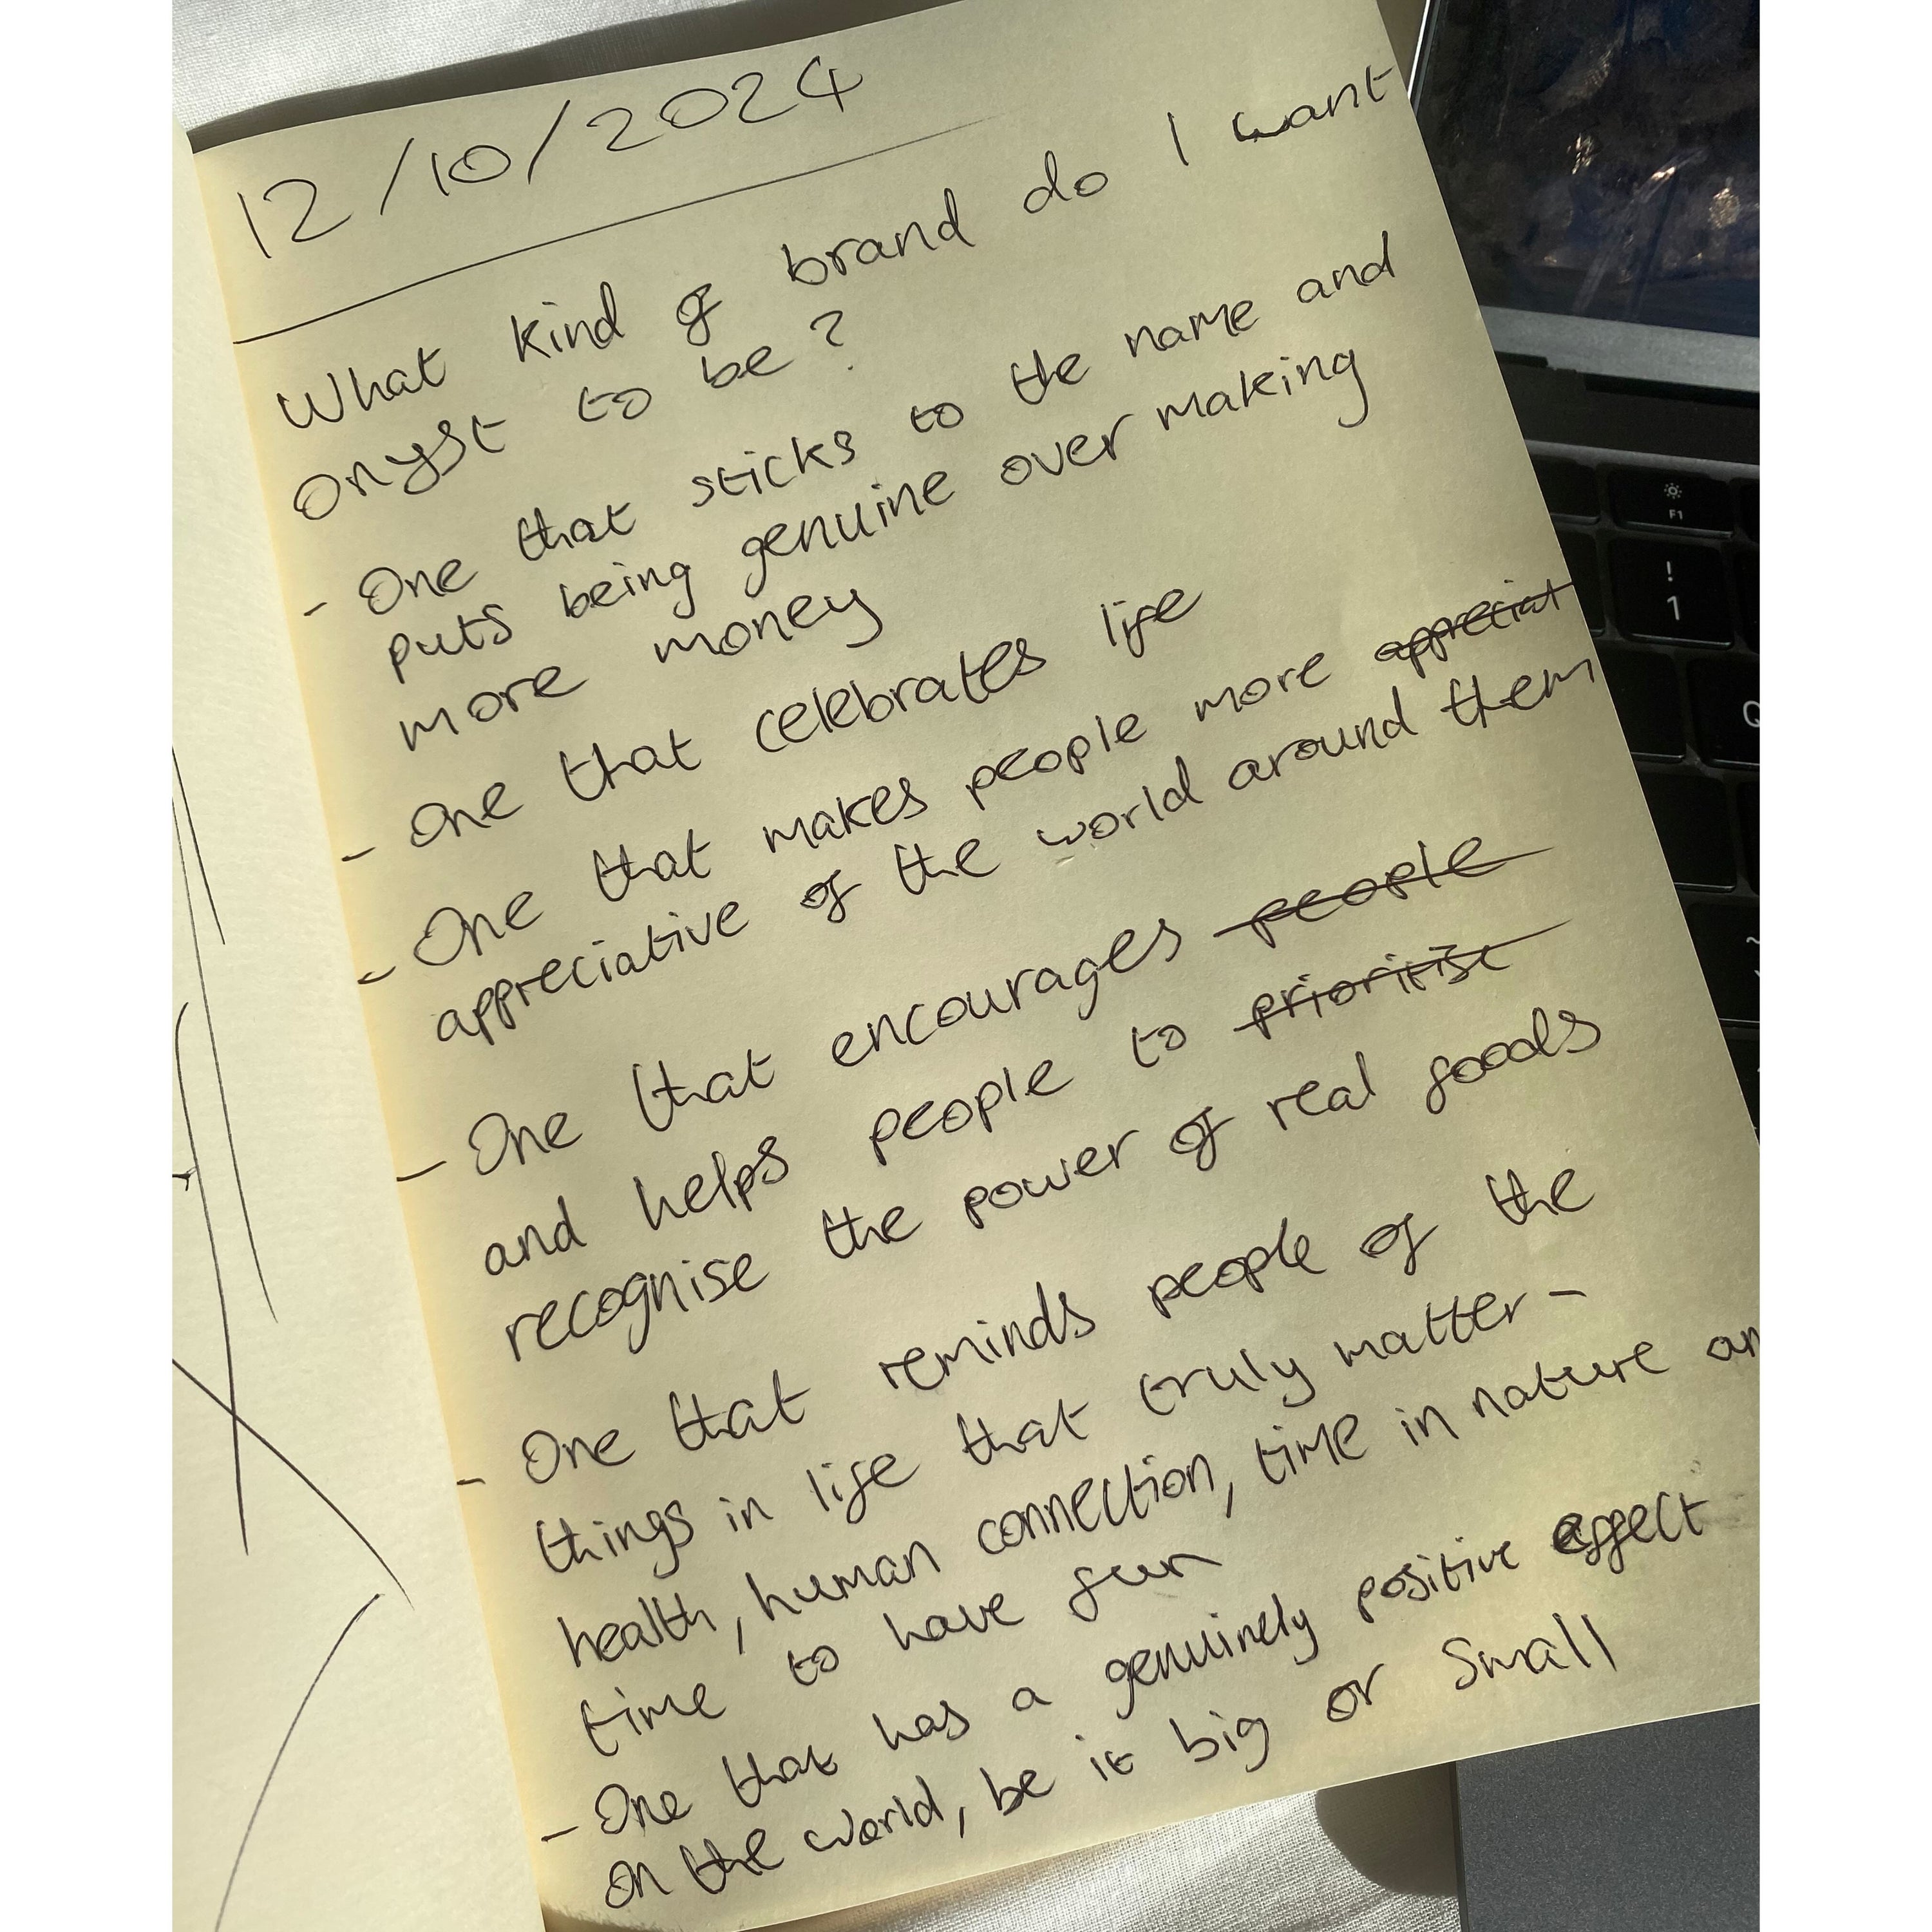 12/10/2024
What kind of brand do I want
onyst to be?
- One that sticks to the name and
puts being genuine over making
more money
- One that celebrates life
- One that makes people more appreciat
appreciative of the world around them
- One that encourages people
and helps people to prioritise
recognise the power of real foods
- One that reminds people of the
things in life that truly matter -
health, human connection, time in nature an
time to have fun
- One that has a genuinely positive effect
on the world, be it big or small
F1
!
1
Q